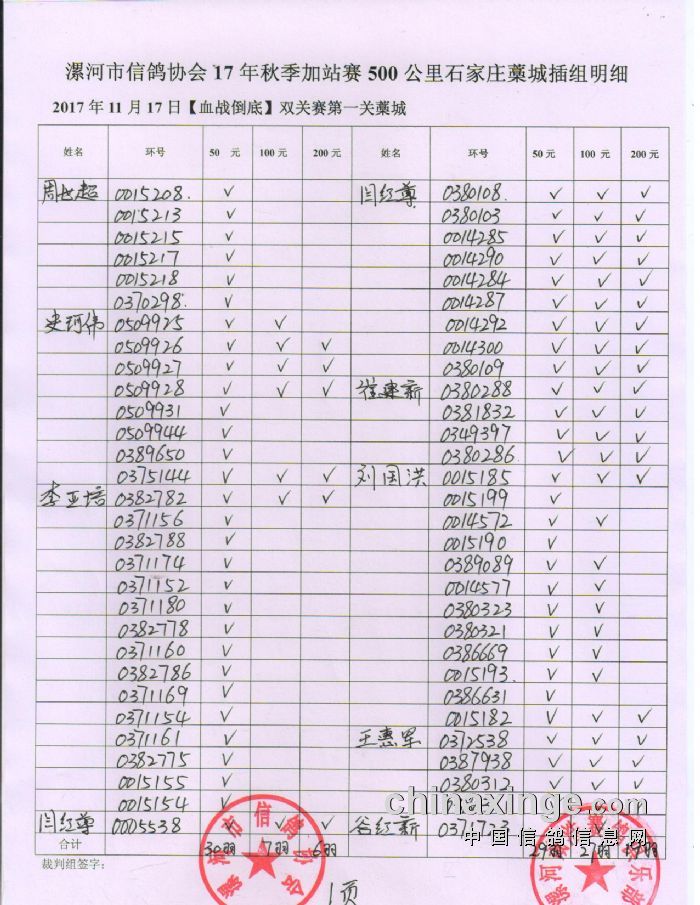 漯河市信鸽协会 17 年秋季加站赛 500 公里石家庄藁城插组明细
2017 年 11 月 17 日【血战倒底】双关赛第一关藁城
姓名 环号 50 元 100 元 200 元 姓名 环号 50 元 100 元 200 元
周世超 0015208. ✓ 闫红尊 0380108. ✓ ✓ ✓
0015213 ✓ 0380103 ✓ ✓ ✓
0015215 ✓ 0014285 ✓ ✓ ✓
0015217 ✓ 0014290 ✓ ✓ ✓
0015218 ✓ 0014284 ✓ ✓ ✓
0370298. ✓ 0014287 ✓ ✓ ✓
史珂伟 0509925 ✓ ✓ 0014292 ✓ ✓ ✓
0509926 ✓ ✓ ✓ 0014300 ✓ ✓ ✓
0509927 ✓ ✓ ✓ 0380109 ✓ ✓ ✓
0509928 ✓ ✓ ✓ 崔建新 0380288 ✓ ✓ ✓
0509931 ✓ 0381832 ✓ ✓ ✓
0509944 ✓ 0349397 ✓ ✓ ✓
0389650 ✓ 0380286 ✓ ✓ ✓
0375144 ✓ ✓ ✓ 刘国洪 0015185 ✓ ✓ ✓
李亚培 0382782 ✓ ✓ ✓ 0015199 ✓
0371156 ✓ 0014572 ✓ ✓
0382788 ✓ 0015190 ✓
0371174 ✓ 0389089 ✓ ✓
0371152 ✓ 0014577 ✓ ✓
0371180 ✓ 0380323 ✓ ✓
0382778 ✓ 0380321 ✓ ✓
0371160 ✓ 0386669 ✓ ✓
0382786 ✓ 0015193. ✓ ✓
0371169 ✓ 0386631 ✓
0371154 ✓ 0015182 ✓ ✓ ✓
0371161 ✓ 王惠军 0372538 ✓ ✓ ✓
0382775 ✓ 0387938 ✓ ✓ ✓
0015155 ✓ 0380312 ✓ ✓ ✓
0015154 ✓
闫红尊 0005538 ✓ ✓ ✓ 谷红新
合计 30羽 7羽 6羽 29羽 21羽
裁判组签字:
1页
漯河市信鸽协会
chinaxinge.com
中国信鸽信息网